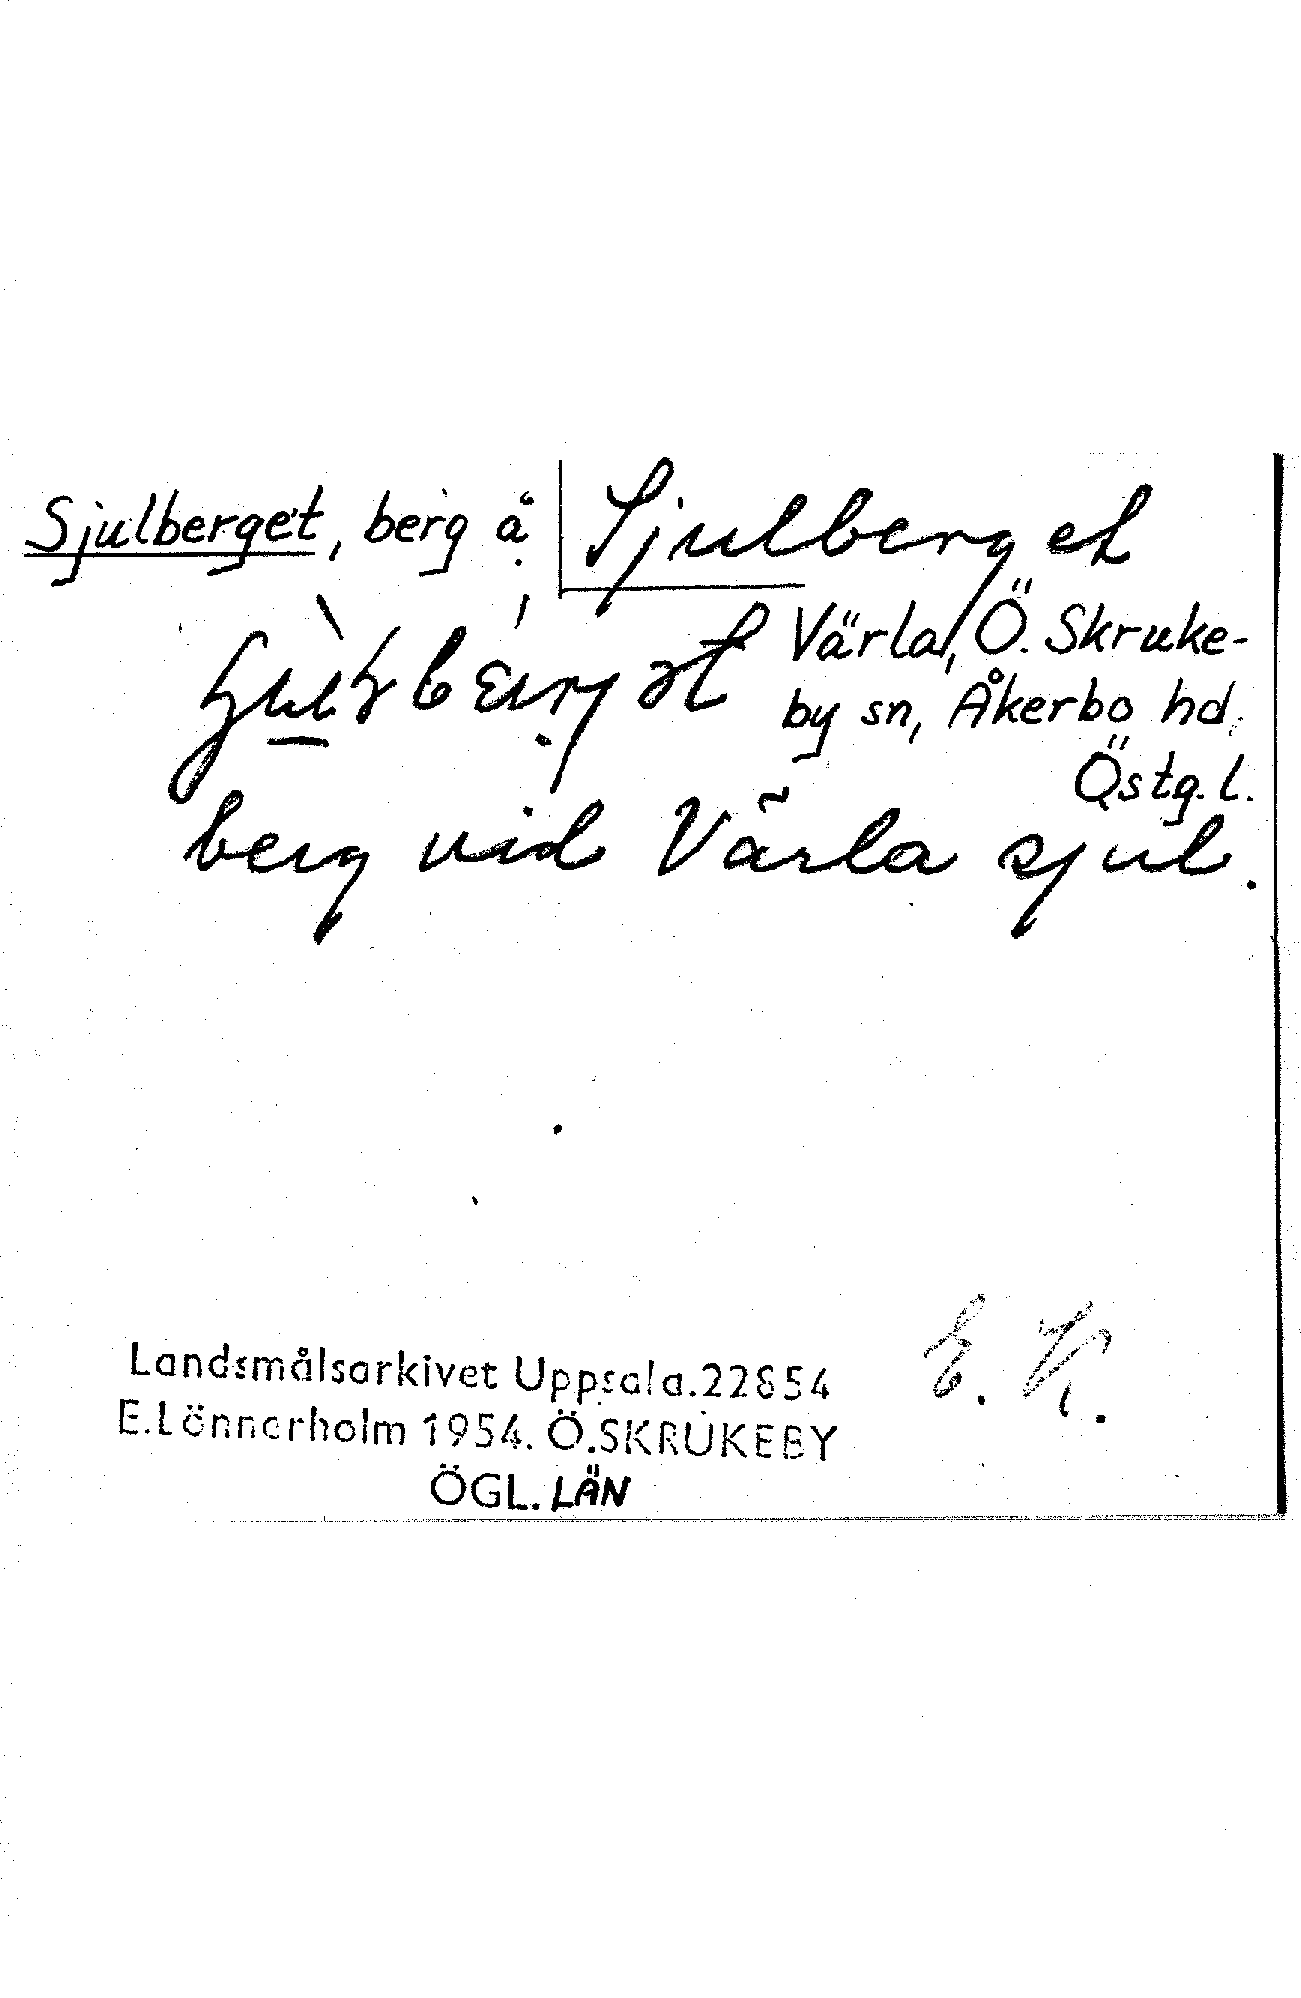 Sjulberget, berg å
Sjulberget
Värla, Ö. Skruke-
by sn, Åkerbo hd.
Östg. l.
berg vid Värla sjul.
E. K.
Landsmålsarkivet Uppsala. 22854
E. Lönnerholm 1954. Ö. SKRUKEBY
ÖGL. LÄN